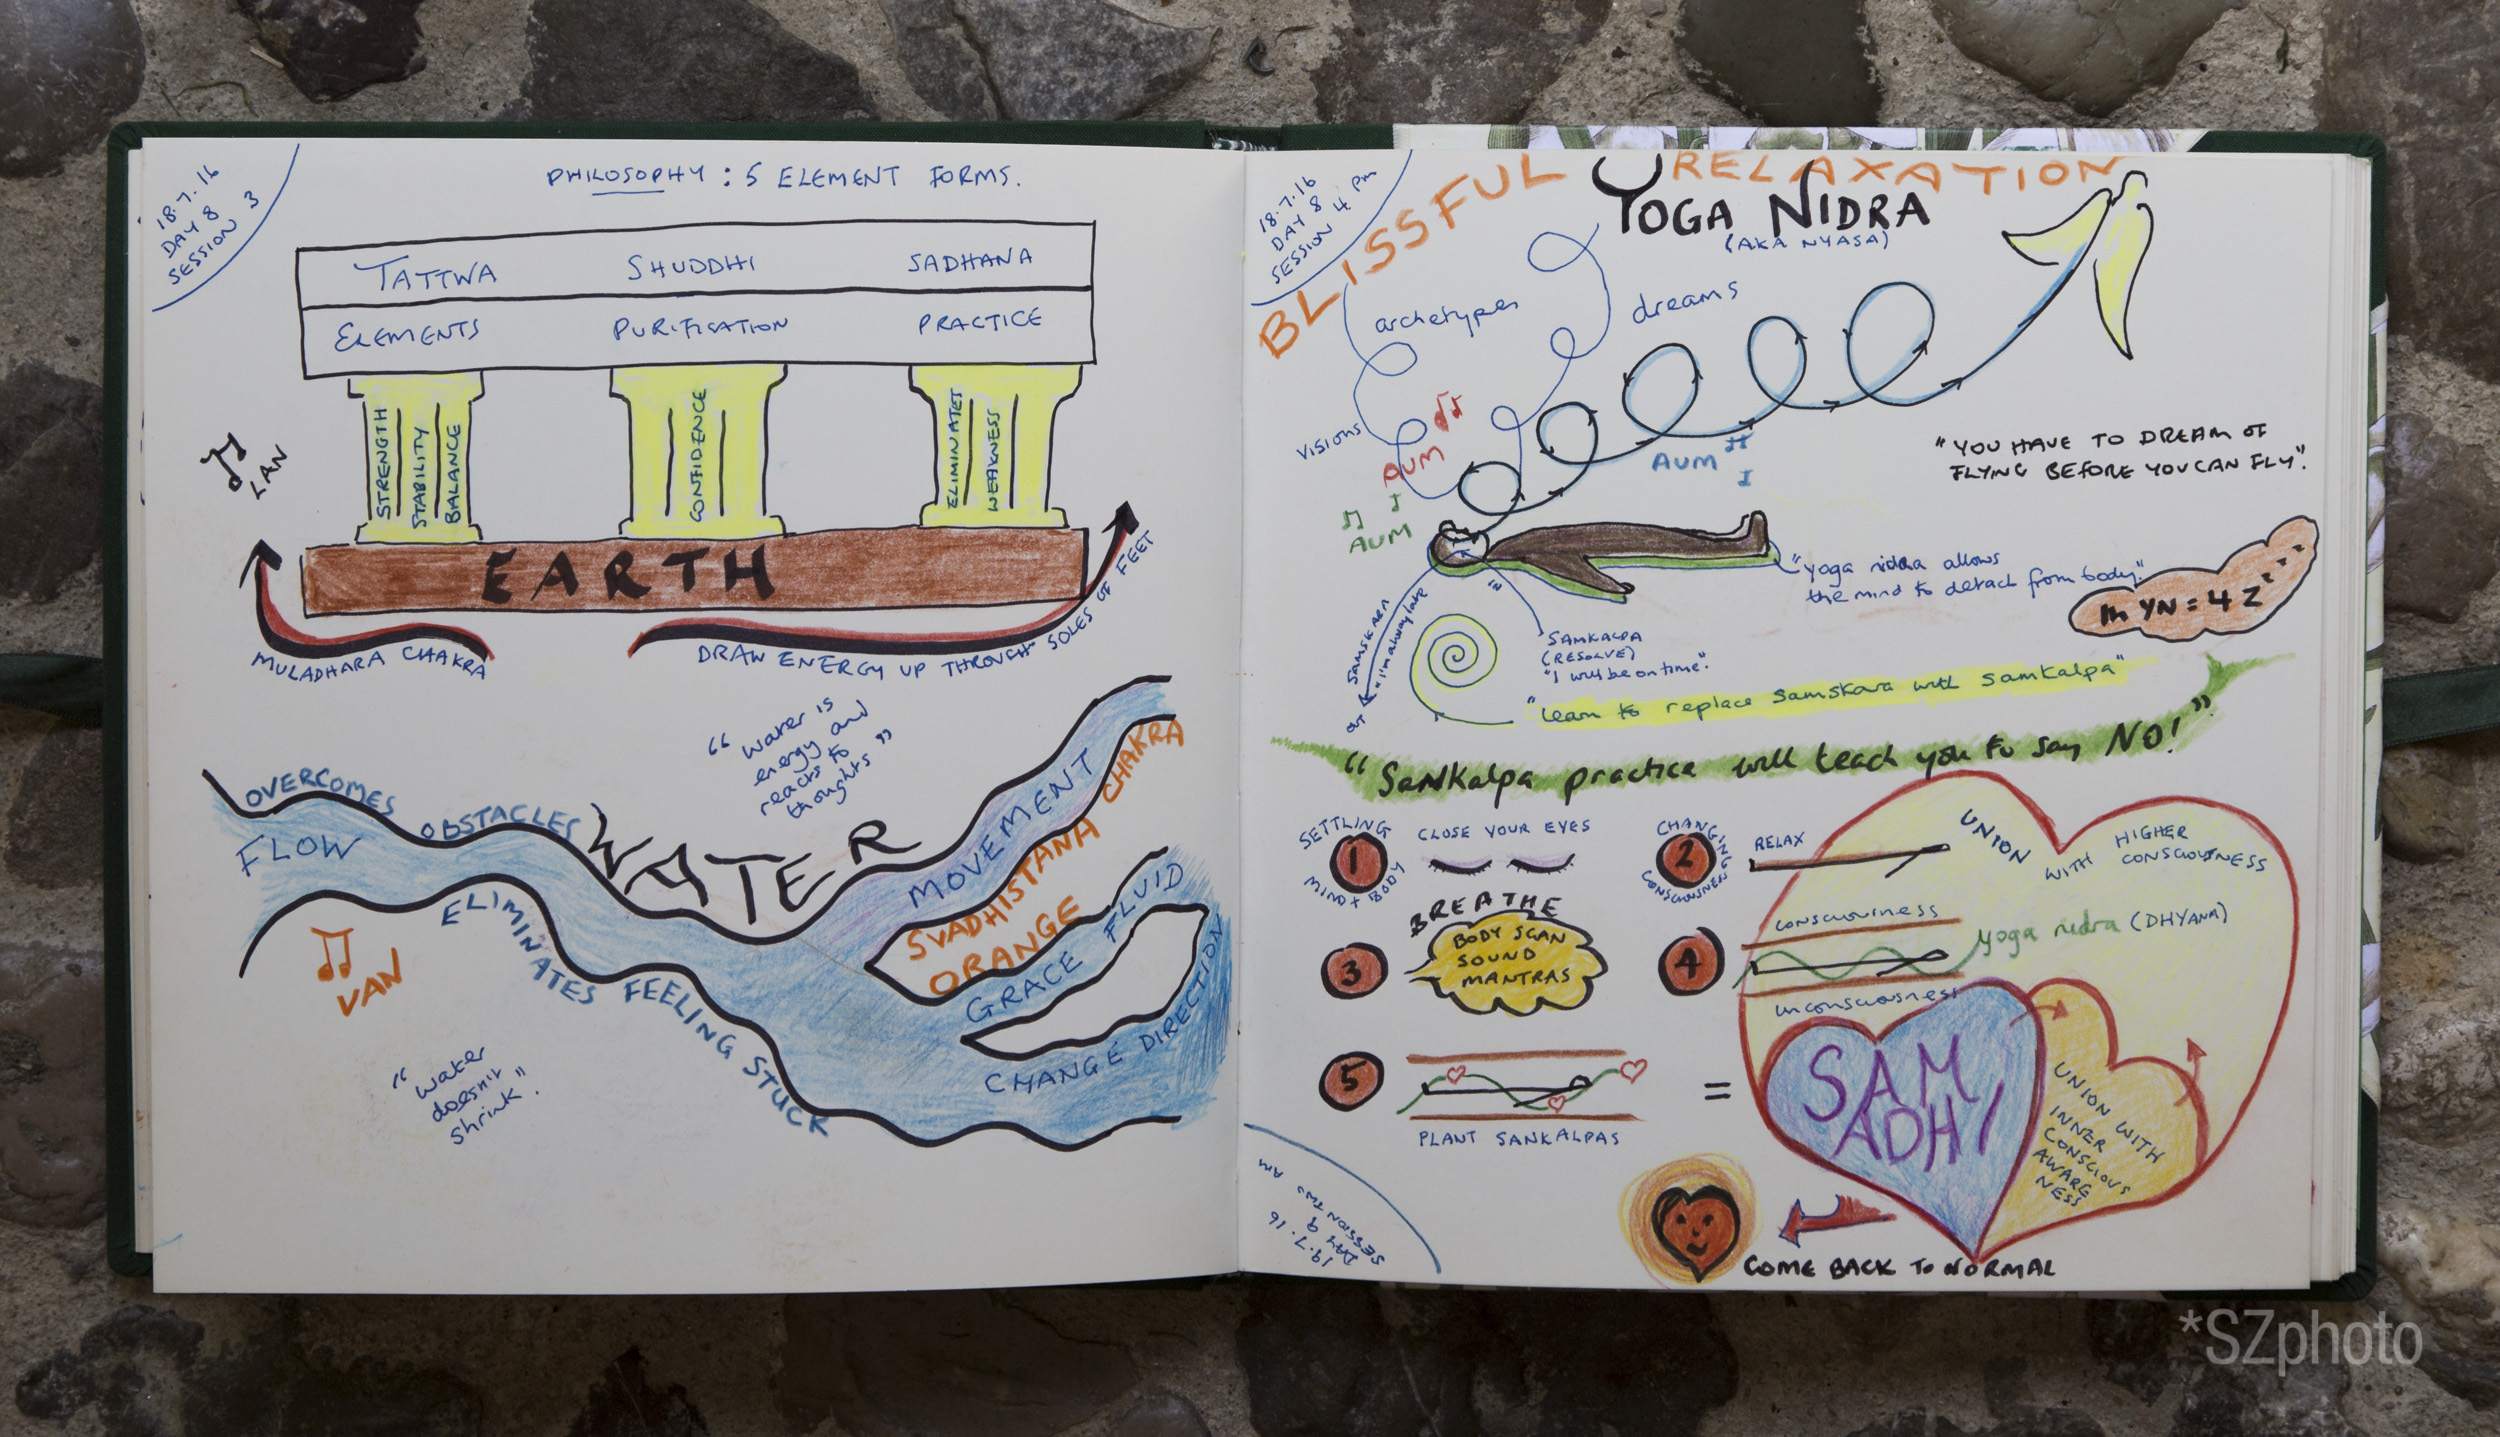 18.7.16
DAY 8
SESSION 3
PHILOSOPHY : 5 ELEMENT FORMS.
TATTWA SHUDDHI SADHANA
ELEMENTS PURIFICATION PRACTICE
STRENGTH
STABILITY
BALANCE
CONFIDENCE
ELIMINATES
WEAKNESS
LAN
EARTH
MULADHARA CHAKRA
DRAW ENERGY UP THROUGH SOLES OF FEET
"water is
energy and
reacts to
thoughts"
OVERCOMES OBSTACLES
FLOW
WATER
MOVEMENT
SVADHISTANA CHAKRA
ORANGE
GRACE FLUID
CHANGE DIRECTION
ELIMINATES FEELING STUCK
VAN
"water
doesn't
shrink".
18.7.16
DAY 8
SESSION 4 PM
BLISSFUL RELAXATION
YOGA NIDRA
(AKA NYASA)
archetypes
dreams
visions
AUM
AUM
AUM
"YOU HAVE TO DREAM OF
FLYING BEFORE YOU CAN FLY".
"yoga nidra allows
the mind to detach from body".
1h YN = 4 Z
SAMSKARA
"I'm always late"
OUT
SAMKALPA
(RESOLVE)
"I will be on time".
"learn to replace samskara with samkalpa"
"Samkalpa practice will teach you to say NO!"
SETTLING
MIND + BODY
1
CLOSE YOUR EYES
CHANGING
CONSCIOUSNESS
2
RELAX
UNION
WITH HIGHER
CONSCIOUSNESS
BREATHE
3
BODY SCAN
SOUND
MANTRAS
4
consciousness
yoga nidra (DHYANA)
unconsciousness
5
PLANT SANKALPAS
=
SAM
ADHI
UNION WITH
INNER
CONSCIOUS
AWARE
NESS
COME BACK TO NORMAL
19.7.16
DAY 9
SESSION TWO AM
*SZphoto